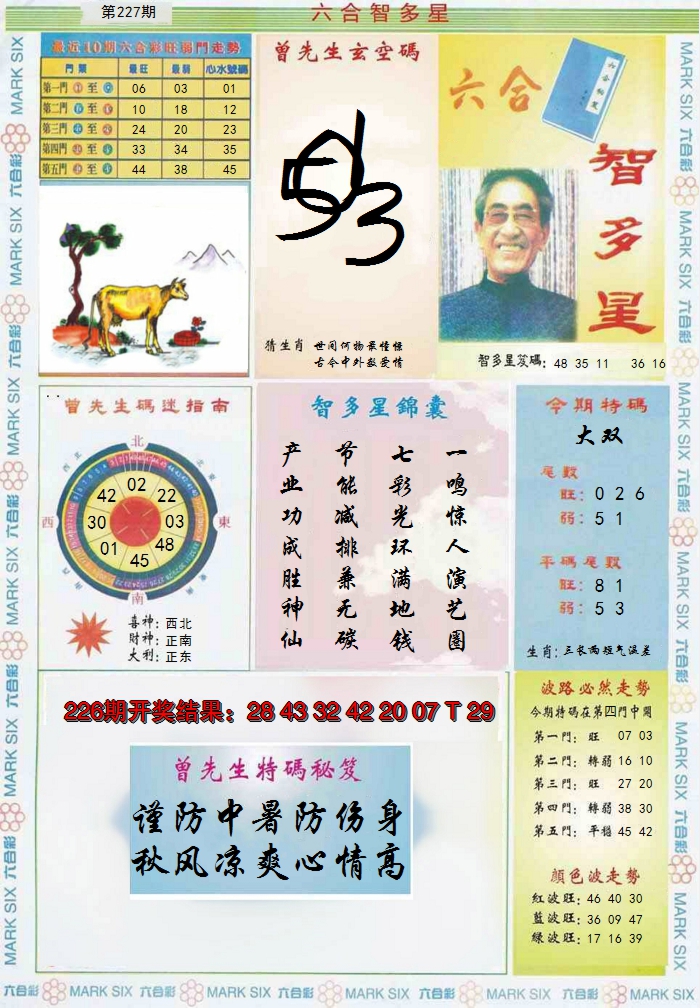 第227期
六合智多星
最近10期六合彩旺弱門走勢
門類 最旺 最弱 心水號碼
第一門 至 06 03 01
第二門 至 10 18 12
第三門 至 24 20 23
第四門 至 33 34 35
第五門 至 44 38 45
曾先生玄空碼
猜生肖 世间何物最惶惶
古今中外敬爱情
六合
智多星
智多星笈碼: 48 35 11 36 16
曾先生碼迷指南
北
西 東
南
02
42 22
30 03
01 48
45
喜神: 西北
財神: 正南
大利: 正东
智多星錦囊
一鸣惊人演艺圈
七彩光环满地钱
节能减排兼无碳
产业功成胜神仙
今期特碼
大双
尾數
旺: 0 2 6
弱: 5 1
平碼尾數
旺: 8 1
弱: 5 3
生肖: 三长两短气温差
226期开奖结果: 28 43 32 42 20 07 T 29
曾先生特碼秘笈
谨防中暑防伤身
秋风凉爽心情高
波路必然走势
今期特碼在第四門中開
第一門: 旺 07 03
第二門: 轉弱 16 10
第三門: 旺 27 20
第四門: 轉弱 38 30
第五門: 平穩 45 42
顏色波走勢
紅波旺: 46 40 30
藍波旺: 36 09 47
綠波旺: 17 16 39
MARK SIX 六合彩